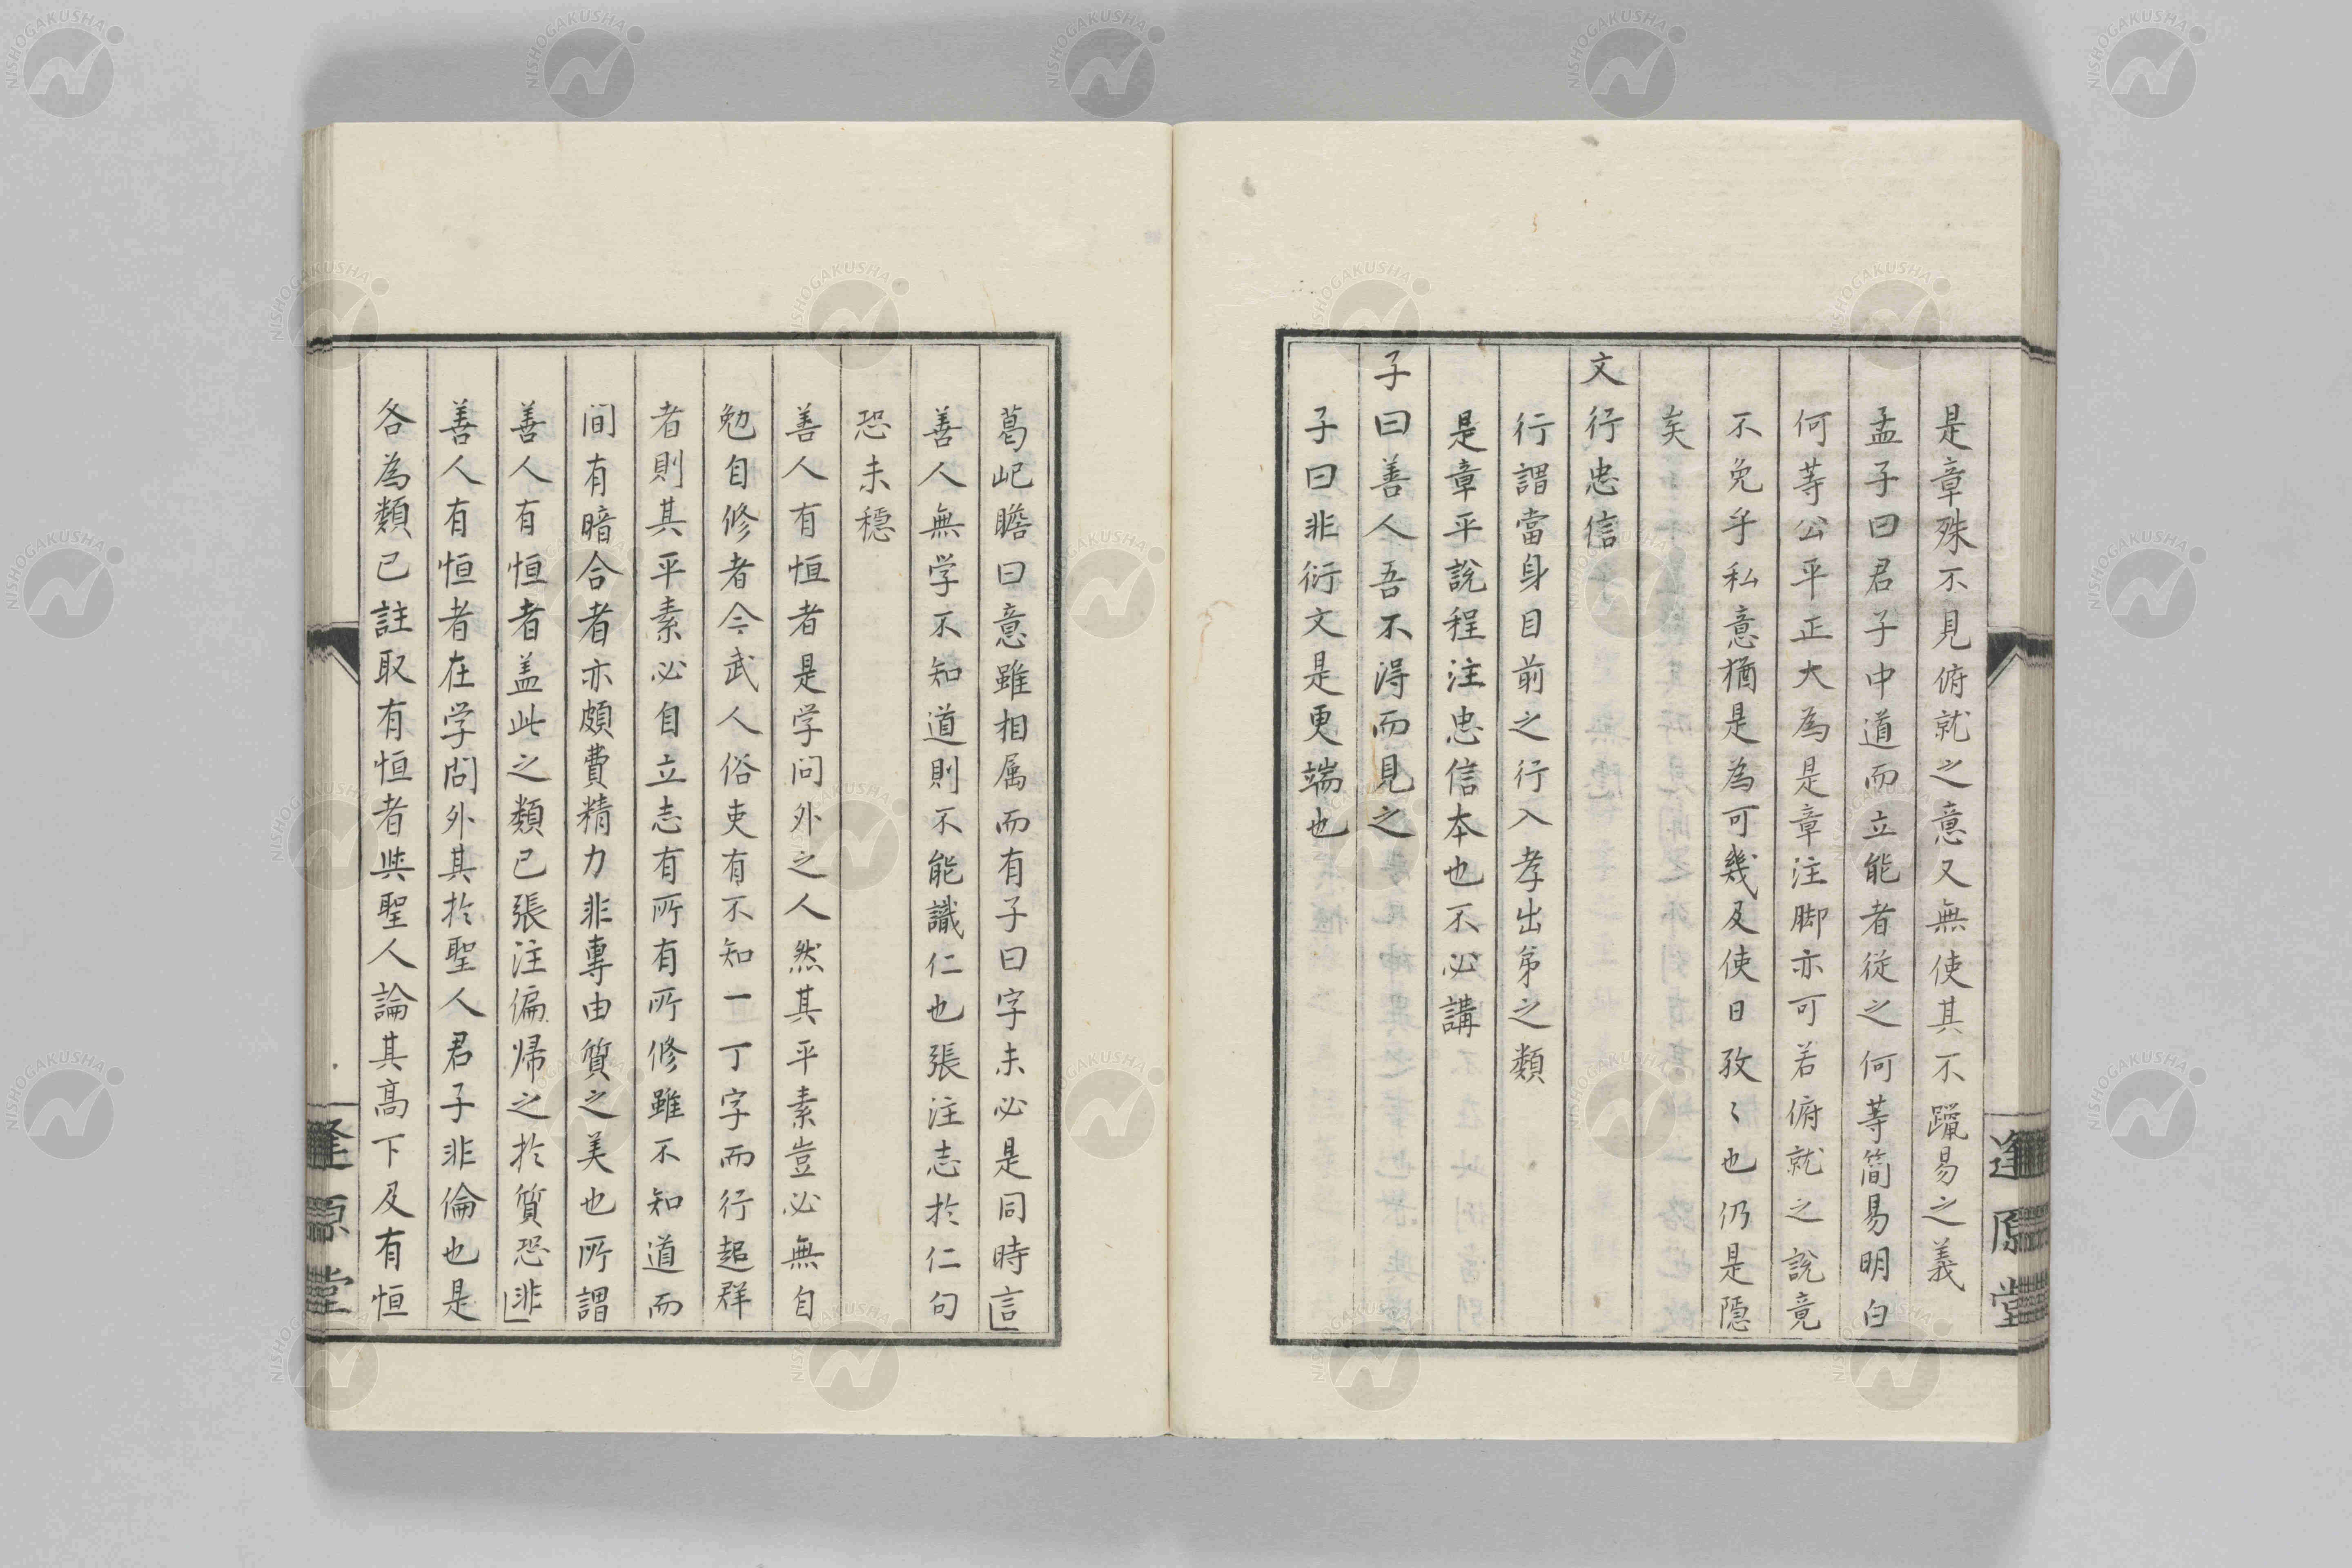 是章殊不見俯就之意又無使其不躐易之義
孟子曰君子中道而立能者從之何等簡易明白
何等公平正大為是章注脚亦可若俯就之說竟
不免乎私意猶是為可幾及使日孜〻也仍是隱
矣
文行忠信
行謂當身目前之行入孝出弟之類
是章平說程注忠信本也不必講
子曰善人吾不得而見之
子曰非衍文是更端也
葛屺瞻曰意雖相属而有子曰字未必是同時言
善人無学不知道則不能識仁也張注志於仁句
恐未穏
善人有恒者是学问外之人然其平素豈必無自
勉自修者今武人俗吏有不知一丁字而行起群
者則其平素必自立志有所有所修雖不知道而
间有暗合者亦頗費精力非專由質之美也所謂
善人有恒者盖此之類已張注偏帰之於質恐非
善人有恒者在学問外其於聖人君子非倫也是
各為類已註取有恒者與聖人論其高下及有恒
逢原堂
逢原堂
NISHOGAKUSHA